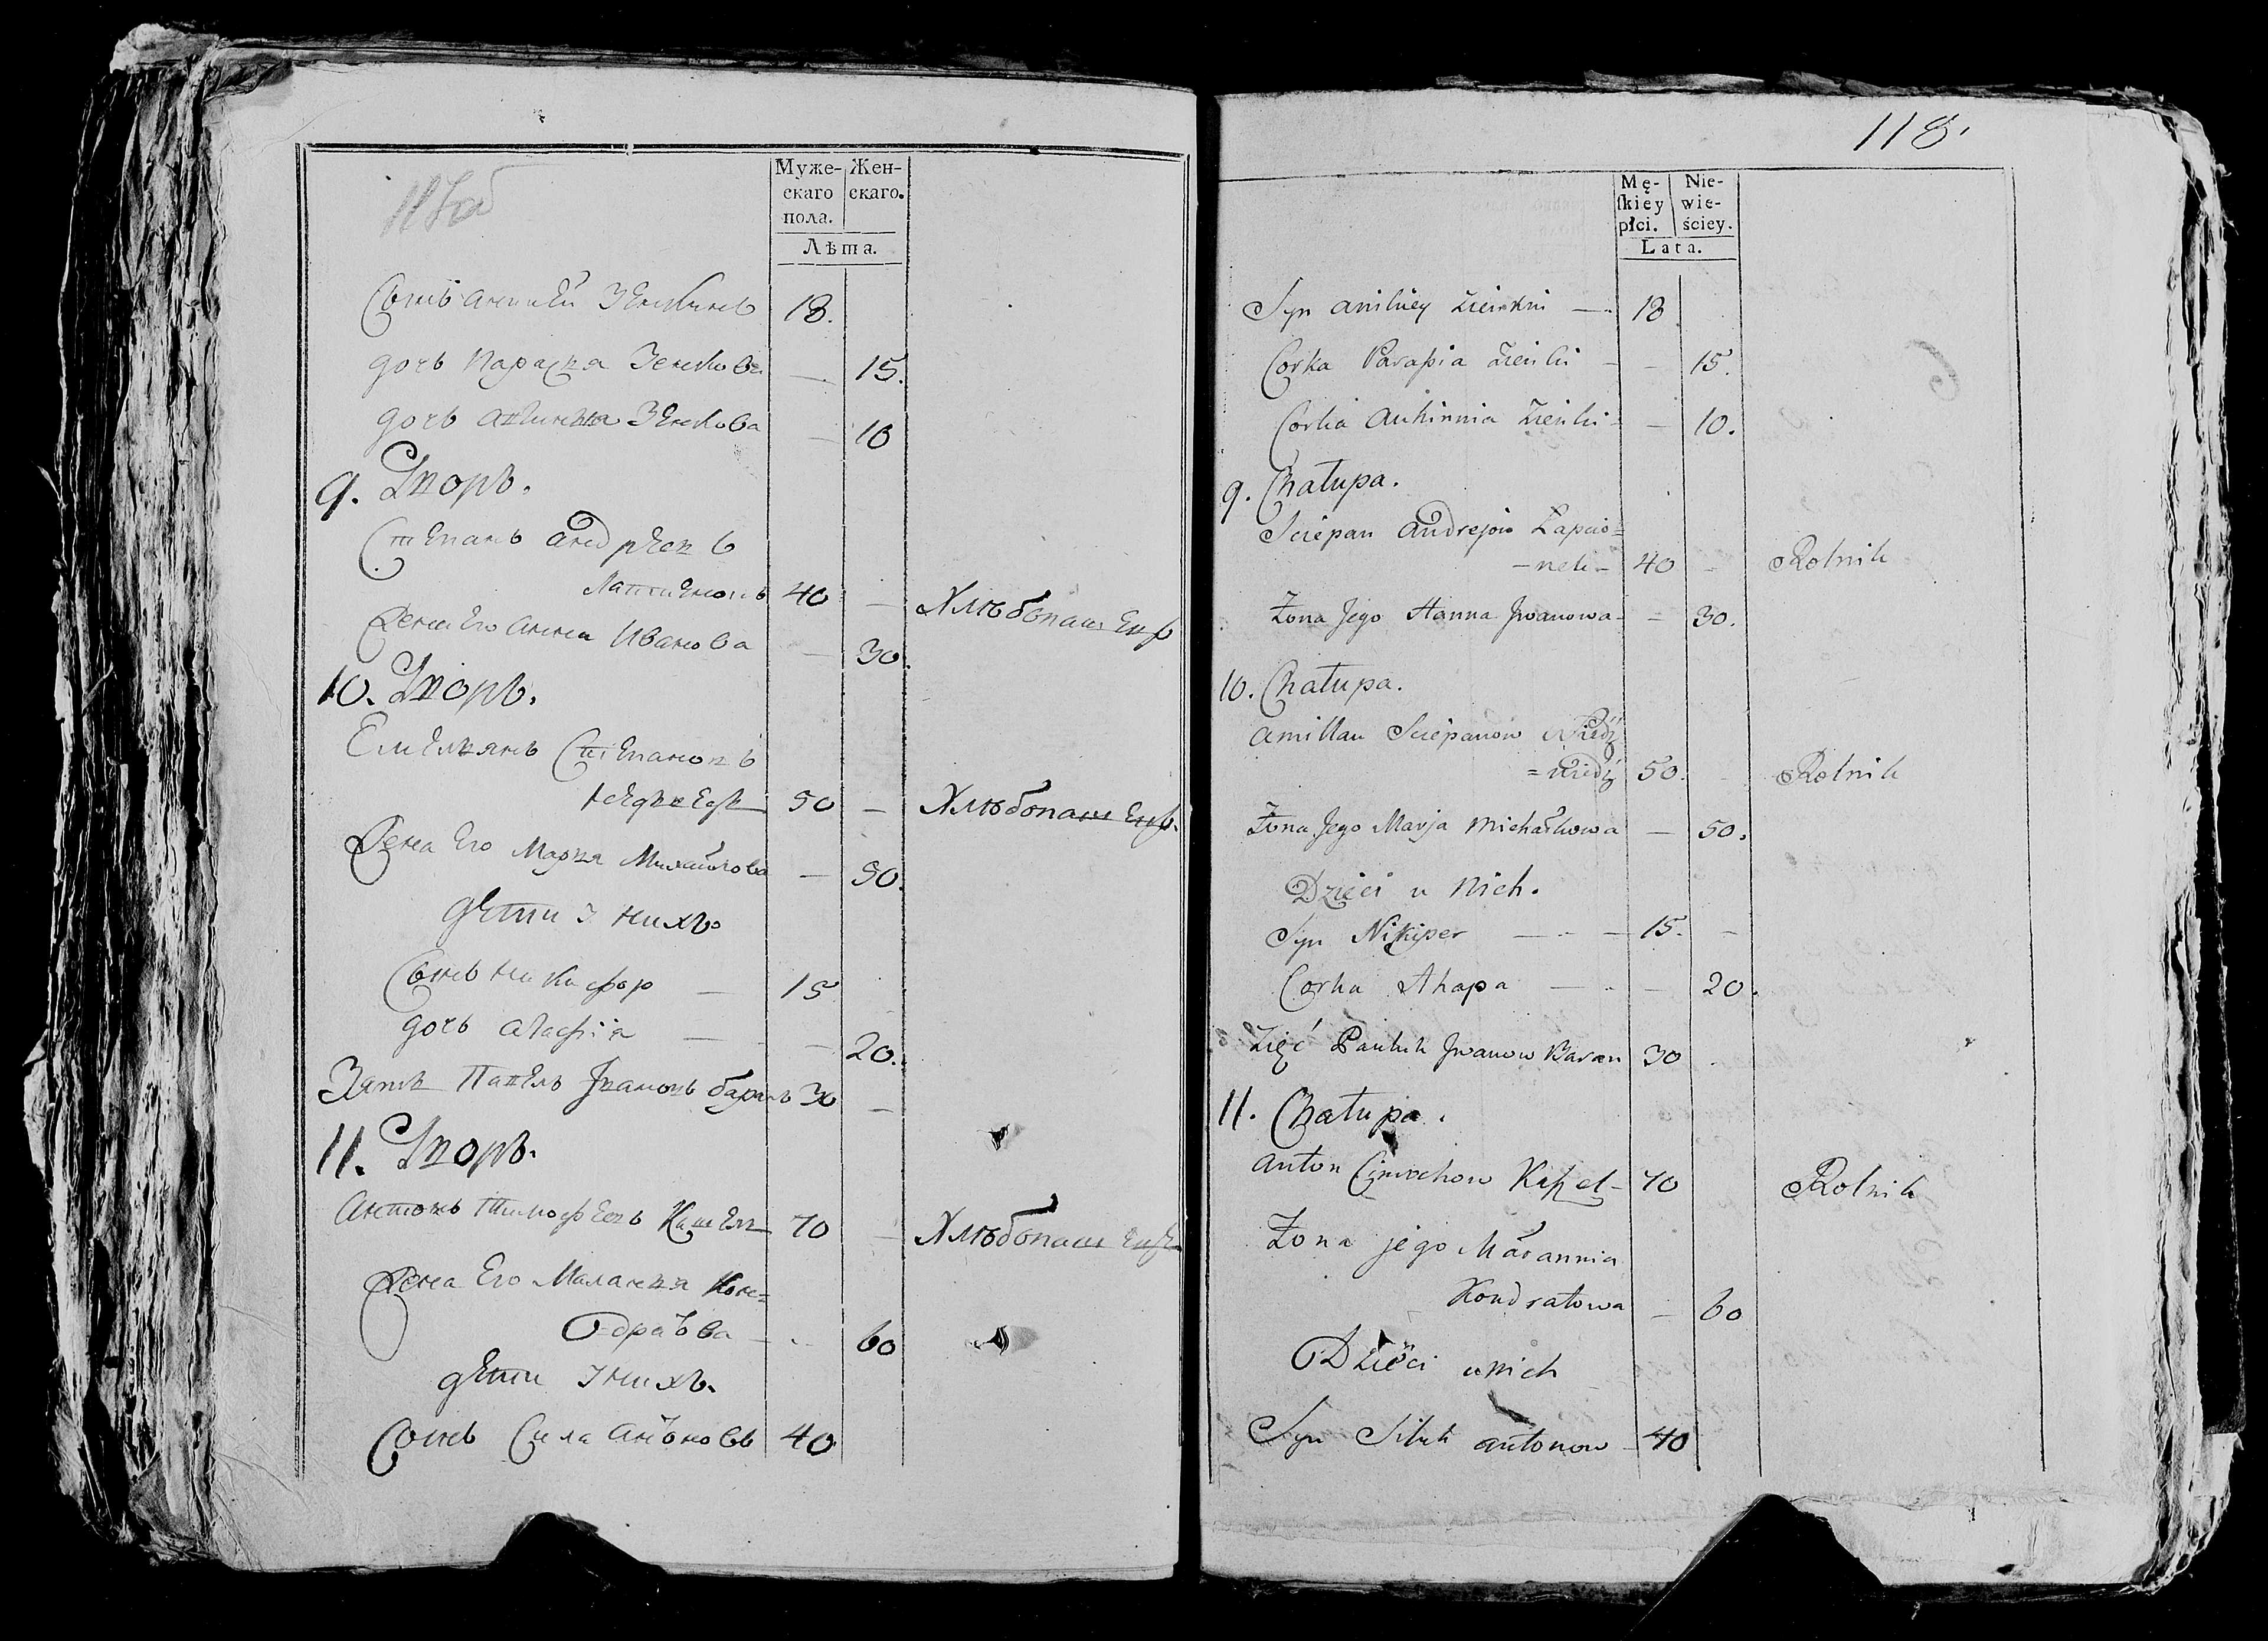 117об
Муже-
скаго
пола.
Жен-
скаго.
Лѣта.
Сынъ Аникей Зенковъ 18.
дочь Параския Зенкова — 15.
дочь Акинния Зенкова — 10
9. Дворъ.
Степанъ Андреевъ
Лаптіонокъ 40 — Хлѣбопашецъ
Жена Его Анна Иванова — 30.
10. Дворъ.
Емельянъ Степановъ
50 — Хлѣбопашецъ.
Жена Его Марья Михайлова — 50.
дети з нихъ
Сынъ Никифор — 15
дочь Агафiя — 20.
Зять Павелъ Iвановъ баранъ 30 —
11. Дворъ.
Антонъ Тимофеевъ Кашель 70 — Хлѣбопашецъ
Жена Его Маланья Кон=
дратьева — 60
дети з нихъ.
Сынъ Сила Антоновъ 40
118.
Mę-
ſkiey
płci.
Nie-
wie-
ściey.
Lata.
Syn Anikiey Zieńkni — 18
Corka Paraſsia Zieńki — 15.
Corka Aukinnia Zieńki — 10.
9. Chałupa.
Sciepan Andrejow Łapcio=
=nek — 40 — Rolnik
Żona Jego Hanna Jwanowa — 30.
10. Chałupa.
Amillan Sciepanow Niedź
=wiedź 50. Rolnik
Żona Jego Marja Michałkowa — 50.
Dzieci u Nich.
Syn Nikiper — 15. —
Corka Ahapa — 20.
Zięć Pauluk Jwanow Baran 30
11. Chałupa.
Anton Cimochow Kaſzel — 70 Rolnik
Żona jego Małannia
Kondratowa — 60
Dzieci u nich
Syn Siłuk Antonow — 40